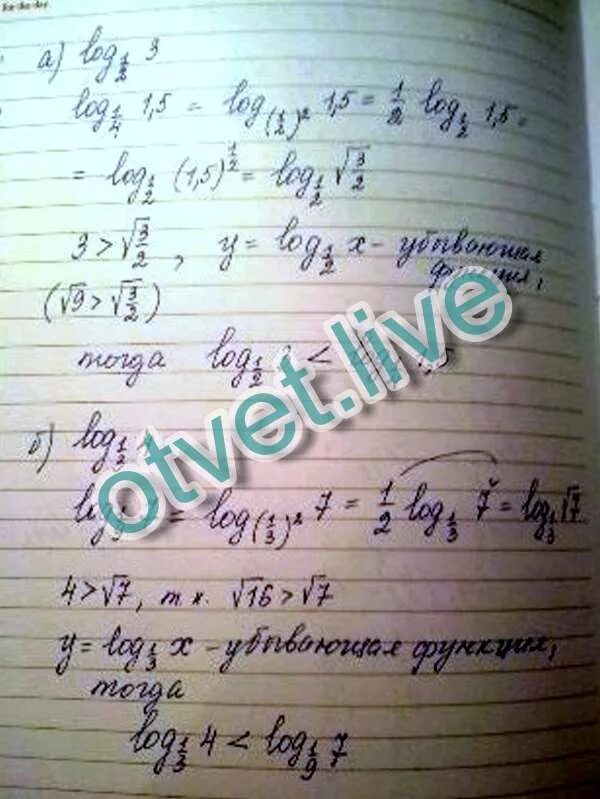 а) log_{1/2} 3
log_{1/4} 1,5 = log_{(1/2)^2} 1,5 = 1/2 log_{1/2} 1,5 =
= log_{1/2} (1,5)^{1/2} = log_{1/2} √(3/2)
3 > √(3/2), y = log_{1/2} x - убывающая
функция,
(√9 > √(3/2))
тогда log_{1/2} < log 1,5
otvet.live
б) log_{1/3}
log = log_{(1/3)^2} 7 = 1/2 log_{1/3} 7 = log_{1/3} √7
4 > √7, т.к. √16 > √7
y = log_{1/3} x - убывающая функция,
тогда
log_{1/3} 4 < log_{1/9} 7